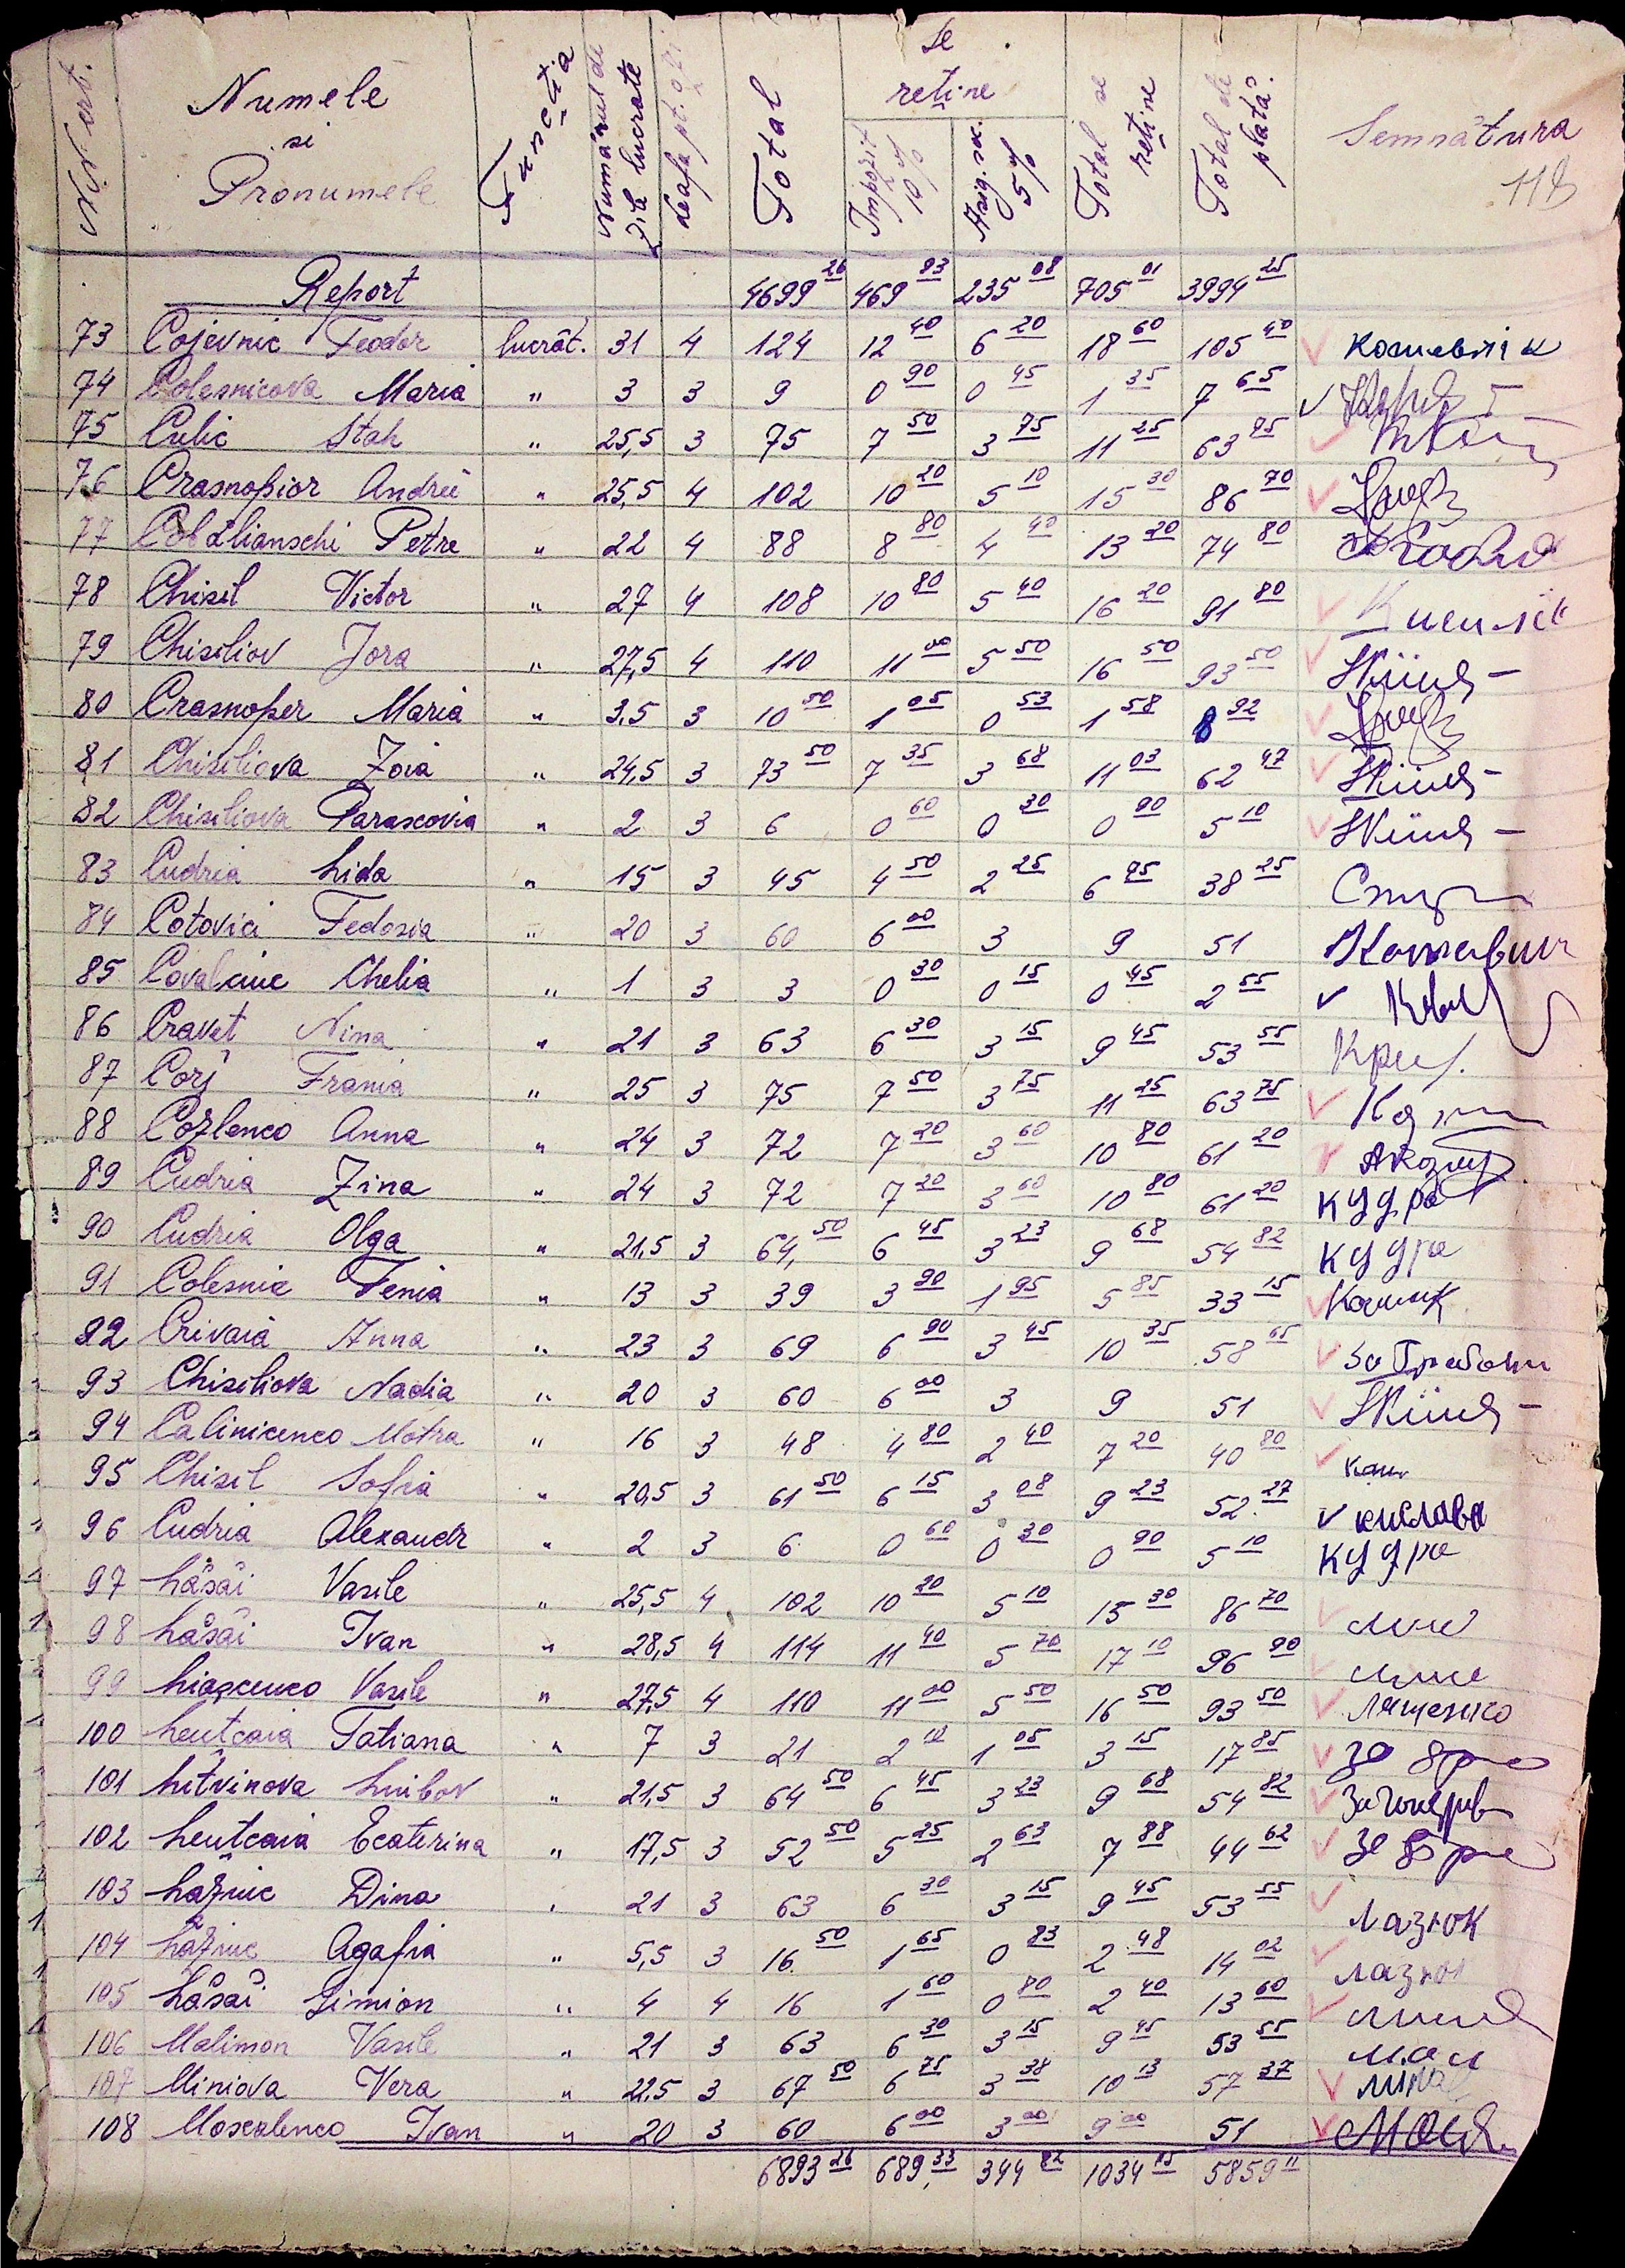 Nr. crt. Numele si Pronumele Functia Numărul de zile lucrate Leafa pt. o zi Total Se retine Impozit 10% Asig. soc. 5% Total se retine Total de plată Semnătura
118
Report 4699 26 469 93 235 08 705 01 3994 25
73 Cojevnic Feodor lucrăt. 31 4 124 12 40 6 20 18 60 105 40 Кошевнік
74 Colesnicova Maria " 3 3 9 0 90 0 45 1 35 7 65
75 Culic Stah " 25,5 3 75 7 50 3 75 11 25 63 75
76 Crasnopior Andrei " 25,5 4 102 10 20 5 10 15 30 86 70
77 Cobălianschi Petre " 22 4 88 8 80 4 40 13 20 74 80
78 Chisil Victor " 27 4 108 10 80 5 40 16 20 91 80
79 Chisiliov Jora " 27,5 4 110 11 00 5 50 16 50 93 50
80 Crasnoper Maria " 3,5 3 10 50 1 05 0 53 1 58 8 92
81 Chisiliova Zoia " 24,5 3 73 50 7 35 3 68 11 03 62 47
82 Chisiliova Parascovia " 2 3 6 0 60 0 30 0 90 5 10
83 Cudria Lida " 15 3 45 4 50 2 25 6 75 38 25
84 Cotovici Fedosia " 20 3 60 6 00 3 9 51
85 Covalciuc Chelia " 1 3 3 0 30 0 15 0 45 2 55
86 Cravet Nina " 21 3 63 6 30 3 15 9 45 53 55
87 Corj Frania " 25 3 75 7 50 3 75 11 25 63 75
88 Cozlenco Anna " 24 3 72 7 20 3 60 10 80 61 20
89 Cudria Zina " 24 3 72 7 20 3 60 10 80 61 20 Кудря
90 Cudria Olga " 21,5 3 64, 50 6 45 3 23 9 68 54 82 Кудря
91 Colesnic Fenia " 13 3 39 3 90 1 95 5 85 33 15
92 Crivaia Anna " 23 3 69 6 90 3 45 10 35 58 65
93 Chisiliova Nadia " 20 3 60 6 00 3 9 51
94 Calinicenco Motra " 16 3 48 4 80 2 40 7 20 40 80
95 Chisil Sofia " 20,5 3 61 50 6 15 3 08 9 23 52 27
96 Cudria Alexandr " 2 3 6 0 60 0 30 0 90 5 10 Кудря
97 Lăsăi Vasile " 25,5 4 102 10 20 5 10 15 30 86 70
98 Lăsăi Ivan " 28,5 4 114 11 40 5 70 17 10 96 90
99 Liascenco Vasile " 27,5 4 110 11 00 5 50 16 50 93 50 Лященко
100 Leutcaia Tatiana " 7 3 21 2 10 1 05 3 15 17 85
101 Litvinova Liubov " 21,5 3 64 50 6 45 3 23 9 68 54 82
102 Leutcaia Ecaterina " 17,5 3 52 50 5 25 2 63 7 88 44 62
103 Laziuc Dina " 21 3 63 6 30 3 15 9 45 53 55 Лазюк
104 Laziuc Agafia " 5,5 3 16 50 1 65 0 83 2 48 14 02
105 Lăsăi Simion " 4 4 16 1 60 0 80 2 40 13 60
106 Malimon Vasile " 21 3 63 6 30 3 15 9 45 53 55
107 Miniova Vera " 22,5 3 67 50 6 75 3 38 10 13 57 37
108 Moscalenco Ivan " 20 3 60 6 00 3 00 9 00 51
6893 26 689, 33 344 82 1034 15 5859 11